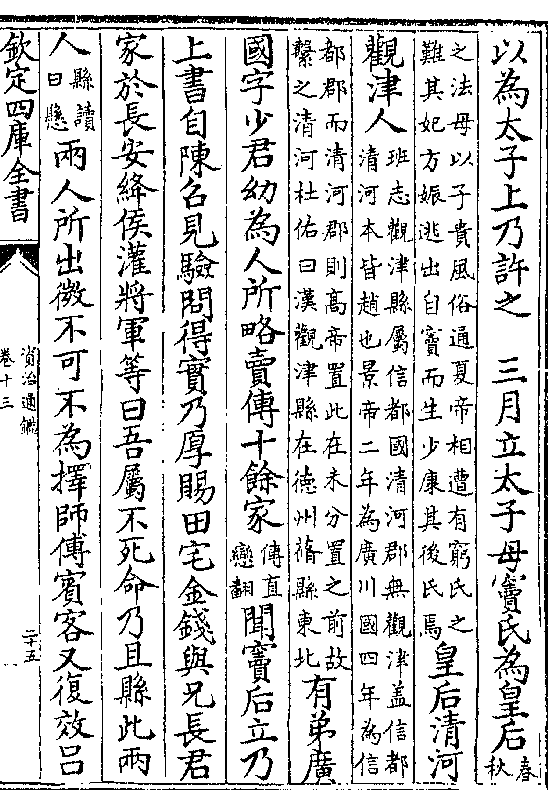 以為太子上乃許之　三月立太子母竇氏為皇后春秋
之法母以子貴風俗通夏帝相遭有窮氏之
難其妃方娠逃出自竇而生少康其後氏焉皇后清河
觀津人班志觀津縣屬信都國清河郡無觀津盖信都
清河本皆趙也景帝二年為廣川國四年為信
都郡而清河郡則高帝置此在未分置之前故
繫之清河杜佑曰漢觀津縣在徳州蓨縣東北有弟廣
國字少君幼為人所略賣傳十餘家傳直戀翻聞竇后立乃
上書自陳召見驗問得實乃厚賜田宅金錢與兄長君
家於長安絳侯灌將軍等曰吾屬不死命乃且縣此兩
人縣讀曰懸兩人所出微不可不為擇師傅賓客又復效吕
欽定四庫全書
資治通鑑
卷十三
二十五